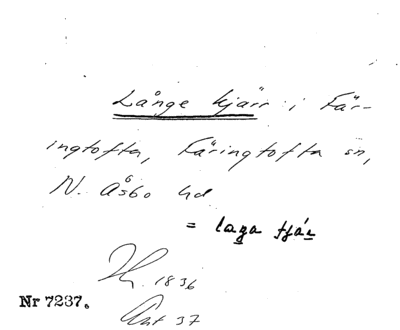 Långe kjärr i Fär-
ingtofta, Färingtofta sn,
N. Åsbo hd
= laga tjár
1836
Nr 7237.
Ant 37